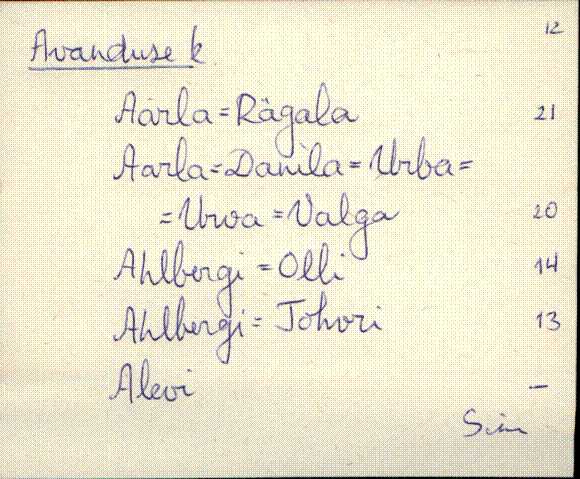 12
Avanduse k
Aarla=Rägala 21
Aarla=Danila=Urba=
=Urva=Valga 20
Ahlbergi=Olli 14
Ahlbergi=Tohvri 13
Alevi –
Sim